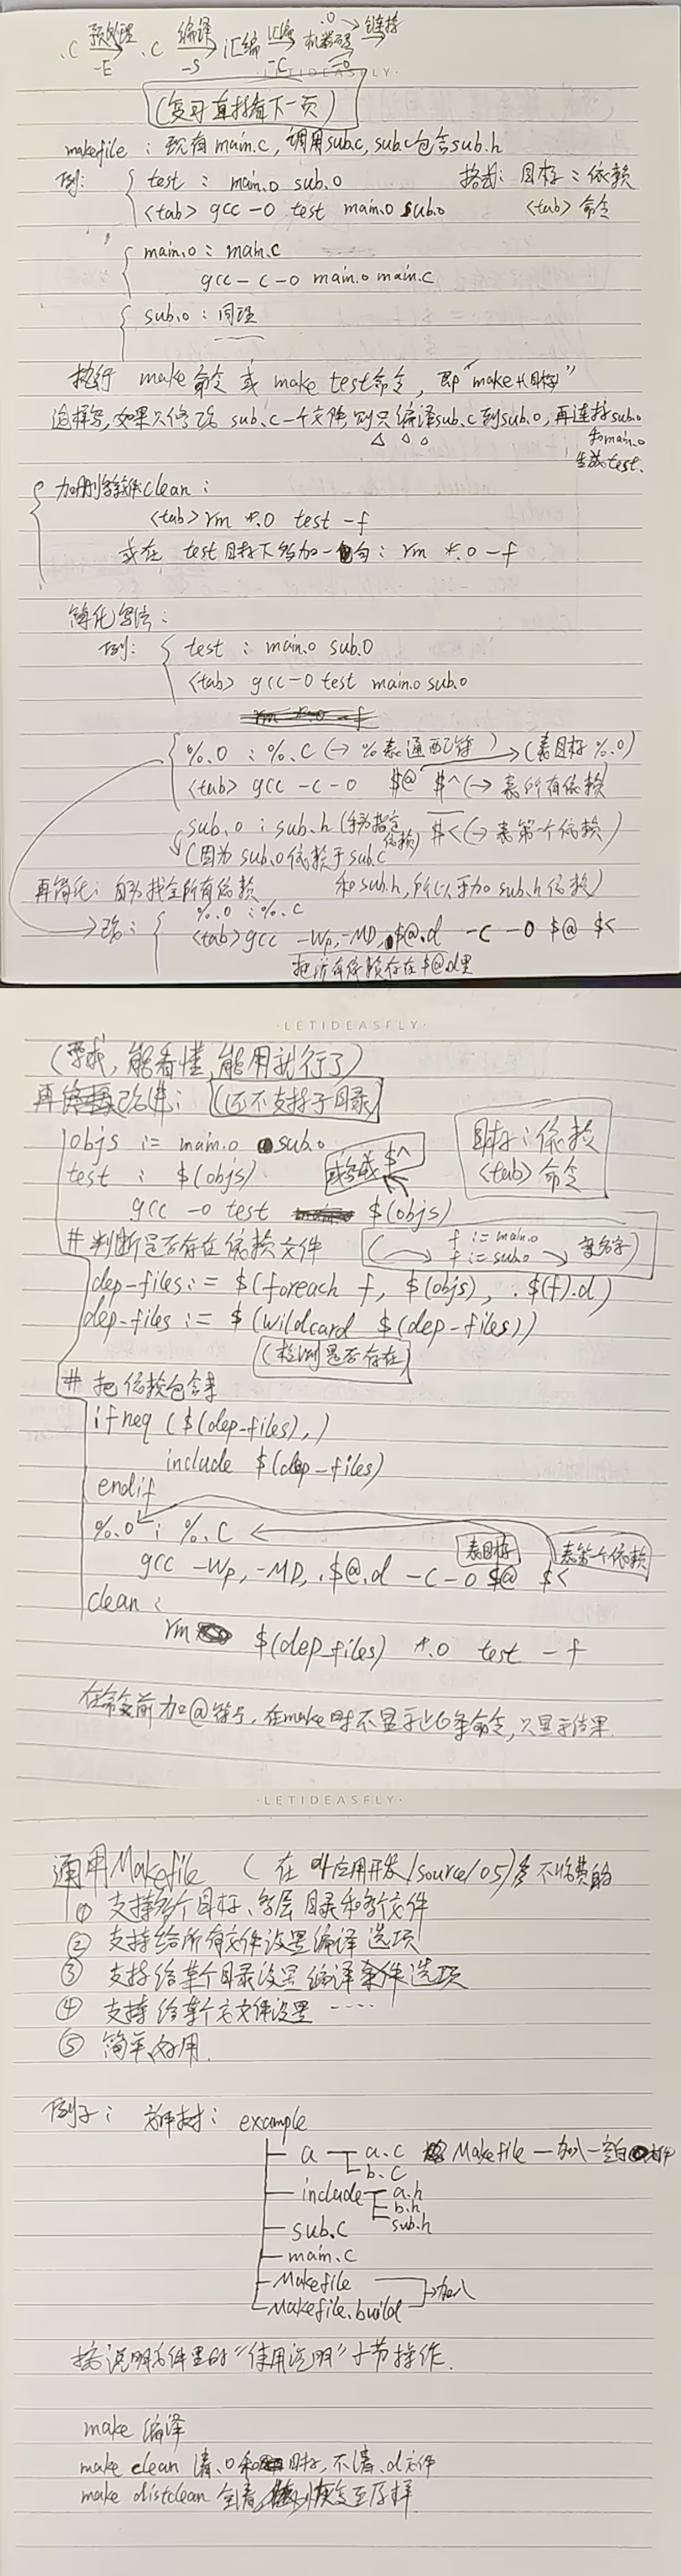 .c 预处理 -E .c 编译 -S 汇编 汇编 -c .o 机器码 链接 -o
·LETIDEASFLY·
(复习直接看下一页)
makefile：现有main.c, 调用sub.c, sub.c包含sub.h
例： test : main.o sub.o 格式: 目标：依赖
<tab> gcc -o test main.o sub.o <tab> 命令
main.o : main.c
gcc -c -o main.o main.c
sub.o : 同理
执行 make命令 或 make test命令, 即"make+(目标)"
这样写, 如果只修改 sub.c一个文件 则只编译sub.c到sub.o, 再连接sub.o
和main.o
生成test.
clean :
<tab> rm *.o test -f
或在 test目标下多加一句: rm *.o -f
简化写法:
例: test : main.o sub.o
<tab> gcc -o test main.o sub.o
%.o : %.c (→ %表通配符) (表目标 %.o)
<tab> gcc -c -o $@ $^ (→ 表所有依赖
sub.o : sub.h (手动指定依赖) $< (→ 表第一个依赖)
(因为 sub.o依赖于sub.c
再简化: 自动找全所有依赖 和sub.h, 所以手加 sub.h依赖)
→ 改: %.o : %.c
<tab> gcc -Wp,-MD,.$@.d -c -o $@ $<
把所有依赖存在$@.d里
·LETIDEASFLY·
(要求, 能看懂, 能用就行了)
再改进: (还不支持子目录)
objs := main.o sub.o
test : $(objs) 或写成 $^ 目标：依赖
<tab> 命令
gcc -o test $(objs)
# 判断是否存在依赖文件 f := main.o
f := sub.o 变名字
dep-files := $(foreach f, $(objs), .$(f).d)
dep-files := $(wildcard $(dep-files))
(检测是否存在)
# 把依赖包含进
ifneq ($(dep-files),)
include $(dep-files)
endif
%.o : %.c
表目标 表第一个依赖
gcc -Wp,-MD,.$@.d -c -o $@ $<
clean :
rm $(dep_files) *.o test -f
在命令前加@符号, 在make时不显示此条命令, 只显示结果.
·LETIDEASFLY·
通用Makefile (在 04应用开发/source/05)
① 支持多个目标、多层目录和多个文件
② 支持给所有文件设置编译选项
③ 支持给某个目录设置编译选项
④ 支持给某个文件设置 ····
⑤ 简单、好用.
例子: example
a a.c Makefile — 加入一空白
b.c
include a.h
b.h
sub.c sub.h
main.c
Makefile
加入
Makefile.build
按说明文件里的"使用说明"小节操作.
make 编译
make clean 清.o和目标, 不清.d文件
make distclean 全清, 恢复至原样